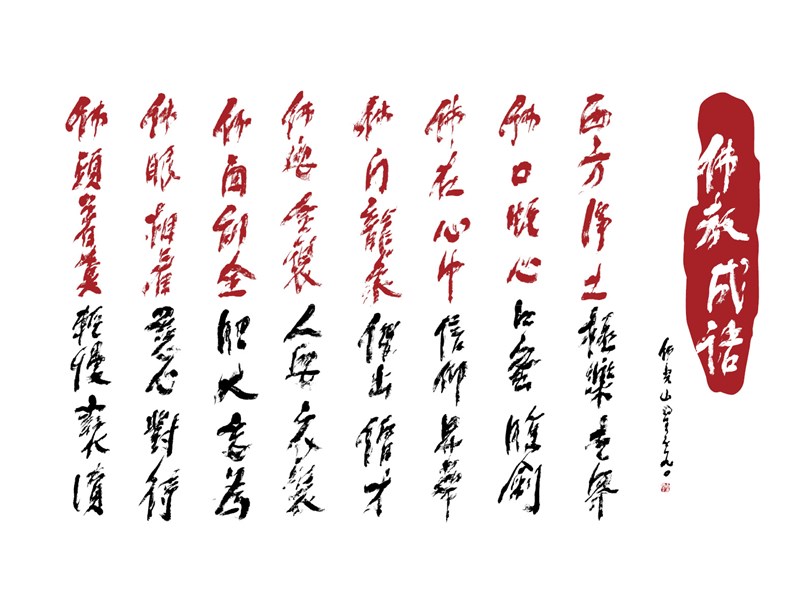 佛教成語
佛光山星雲
西方淨土極樂世界
佛口蛇心口蜜腹劍
佛在心中信仰昇華
佛門龍象傑出僧才
佛要金裝人要衣裝
佛面刮金胆大妄為
佛眼相看慈心對待
佛頭著糞輕慢褻瀆